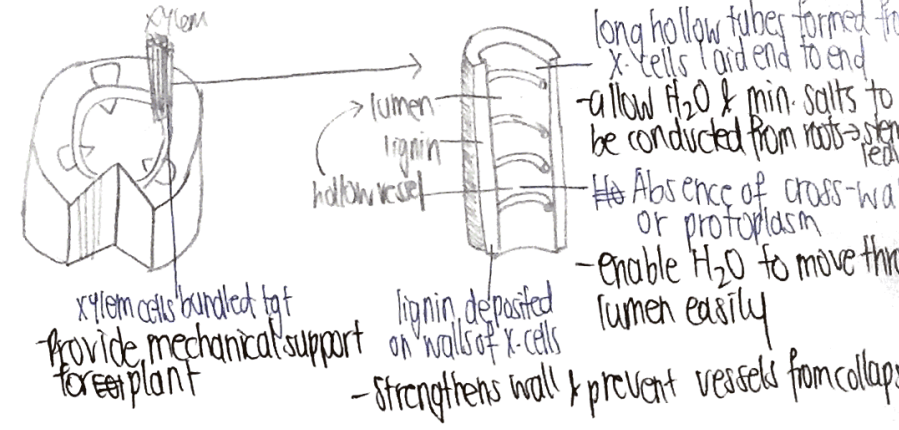 xylem
long hollow tubes formed
x-cells laid end to end
-allow H₂O & min. salts to
be conducted from roots→stem
lumen
lignin
hollow vessel
Absence of cross-wa
or protoplasm
-enable H₂O to move thr
lumen easily
xylem cells bundled tgt
-Provide mechanical support
for plant
lignin deposited
on walls of x-cells
-strengthens wall & prevent vessels from collaps